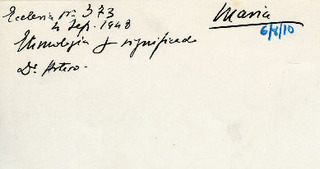 Ecclesia nº 373
4 Sep. 1948
Etimología y significado
Dr. Artero.
María
6/8/10